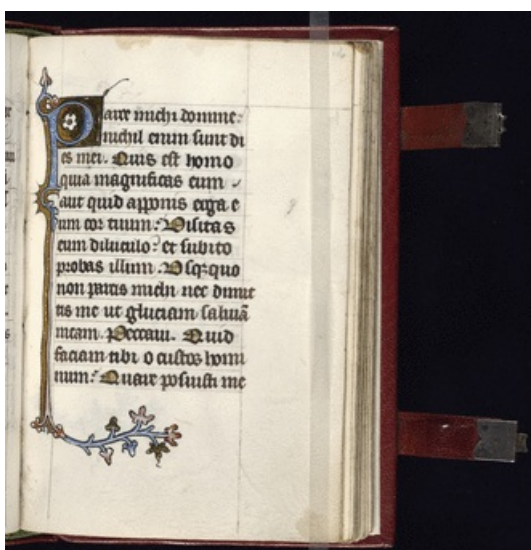 Parce michi domine:
nichil enim sunt di
es mei. Quis est homo
quia magnificas eum
aut quid apponis erga e
um cor tuum: Visitas
eum diluculo: et subito
probas illum. Usqzquo
non parcis michi nec dimit
tis me ut gluciam saliuā
meam. Peccaui. Quid
faciam tibi o custos homi
num: Quare posuisti me